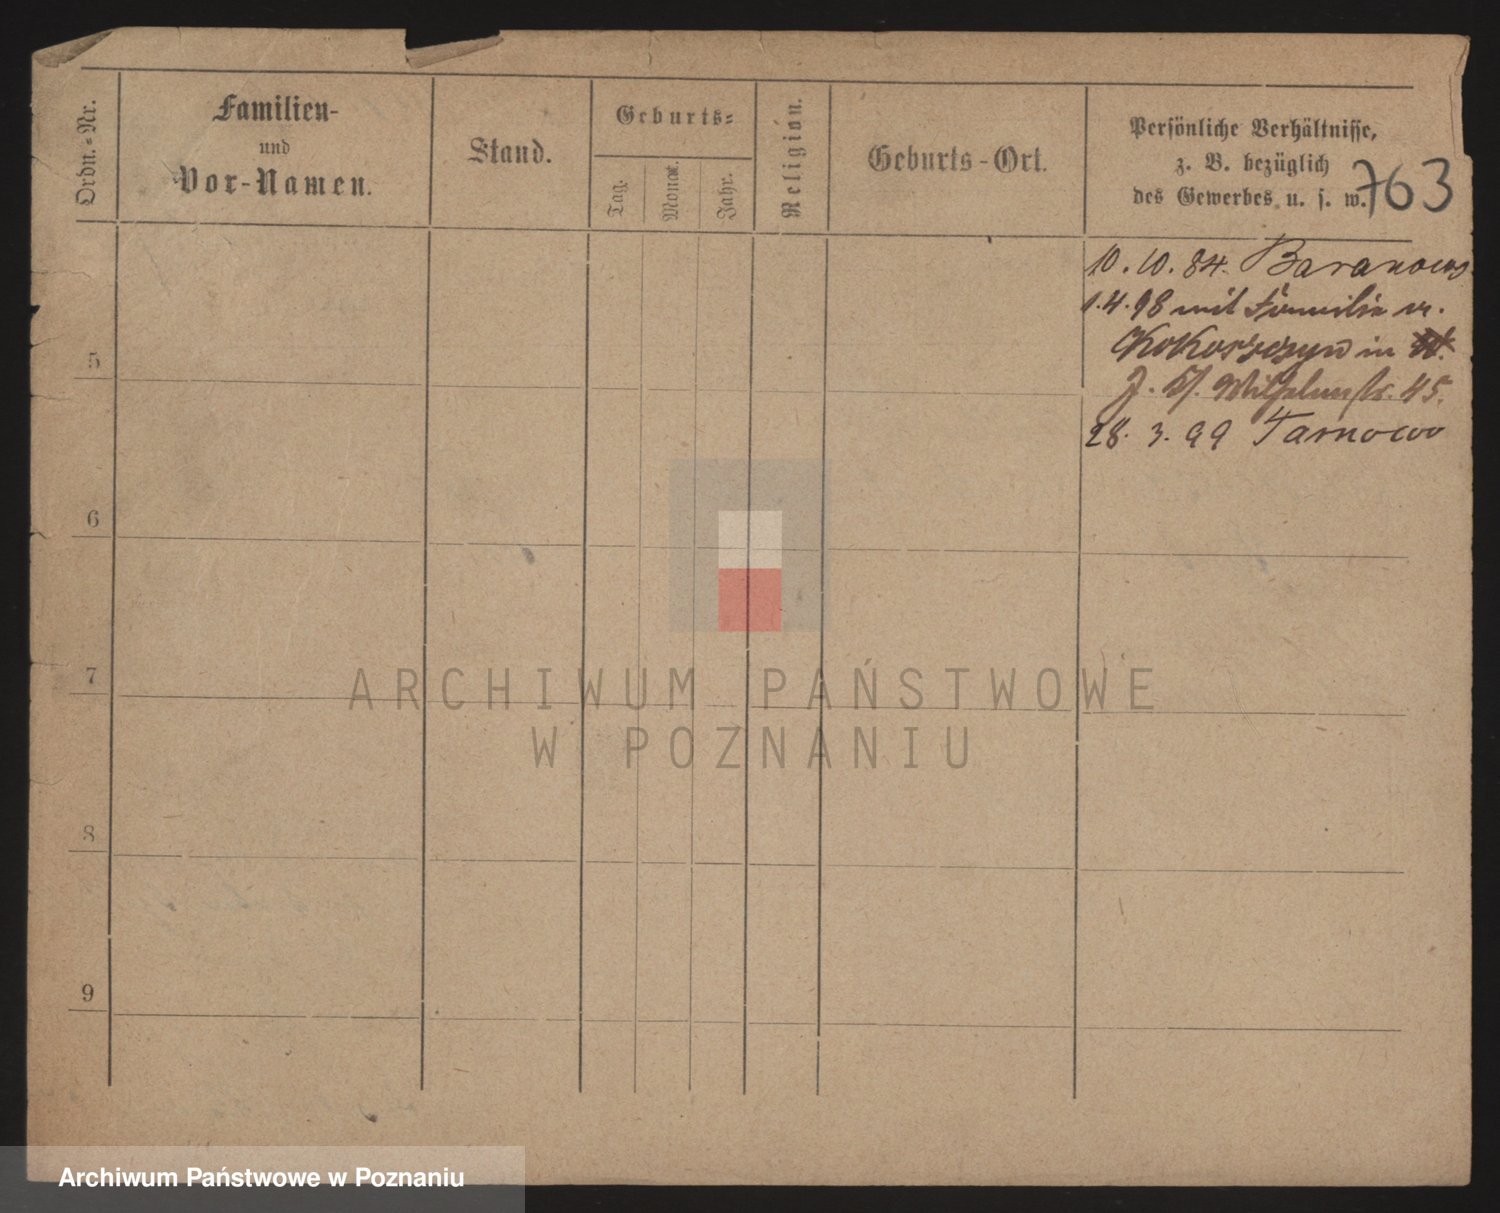 Ordn.-Nr.
Familien-
und
Vor-Namen.
Stand.
Geburts-
Tag.
Monat.
Jahr.
Religion.
Geburts-Ort.
Persönliche Verhältnisse,
z. B. bezüglich
des Gewerbes u. s. w.
763
10. 10. 84. Baranowo
1.4.98 mit Familie v.
Kokoszczyn in
J. Wilhelmstr. 45.
28. 3. 99 Tarnowo
5
6
7
8
9
ARCHIWUM PAŃSTWOWE
W POZNANIU
Archiwum Państwowe w Poznaniu